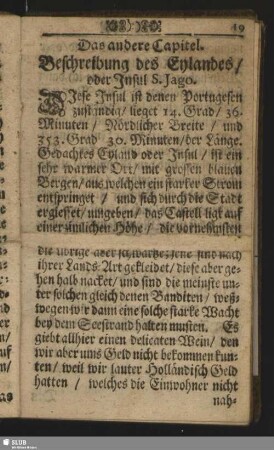 19
Das andere Capitel.
Beschreibung des Eylandes/
oder Insul S. Jago.
DIese Insul ist denen Portugesen
zuständig/ lieget 14. Grad/ 36.
Minuten/ Nördlicher Breite/ und
353. Grad 30. Minuten/ der Länge.
Gedachtes Eyland oder Insul/ ist ein
sehr warmer Ort/ mit grossen blauen
Bergen/ aus welchen ein starker Strom
entspringet / und sich durch die Stadt
ergiesset/ umgeben/ das Castell ligt auf
einer zimlichen Höhe / die vornehmsten
die übrige aber schwartze und nach
ihrer Lands-Art gekleidet/ diese aber ge-
hen halb nacket/ und sind die meinste un-
ter solchen gleich denen Banditen/ weß-
wegen wir dann eine solche starke Wacht
bey dem Seestrand halten musten. Es
giebt allhier einen delicaten Wein/ den
wir aber ums Geld nicht bekommen kun-
ten/ weil wir lauter Holländisch Geld
hatten / welches die Einwohner nicht
nah-
SLUB